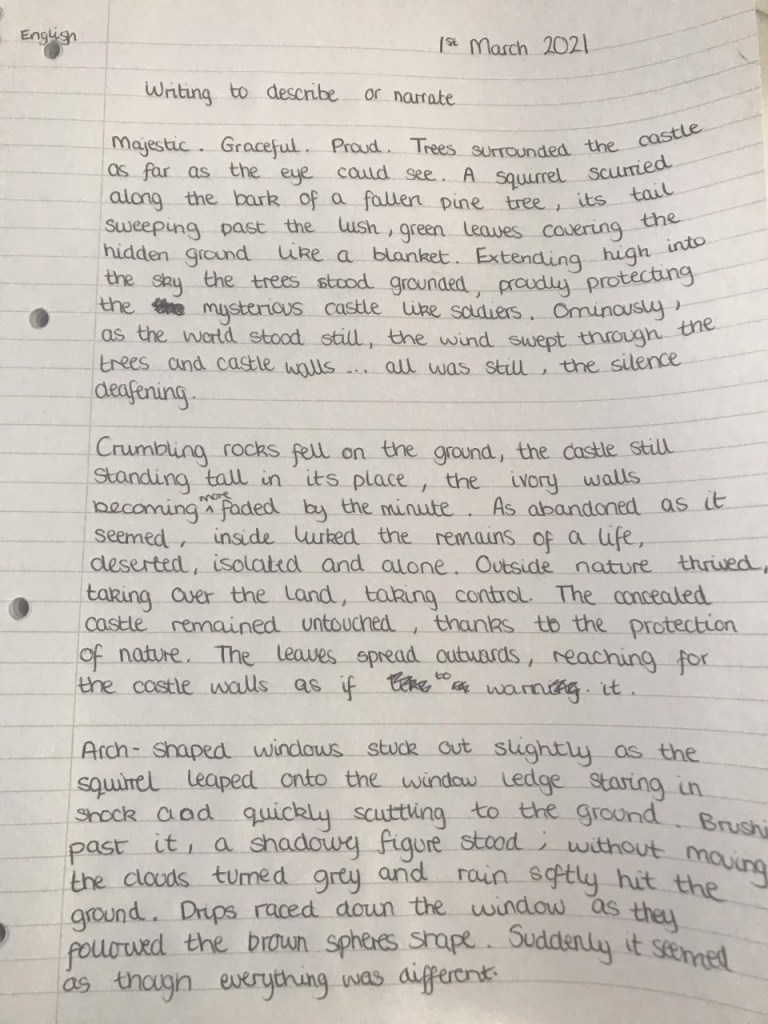 English
1st March 2021
Writing to describe or narrate
Majestic. Graceful. Proud. Trees surrounded the castle
as far as the eye could see. A squirrel scurried
along the bark of a fallen pine tree, its tail
sweeping past the lush, green leaves covering the
hidden ground like a blanket. Extending high into
the sky the trees stood grounded, proudly protecting
the mysterious castle like soldiers. Ominously,
as the world stood still, the wind swept through the
trees and castle walls ... all was still, the silence
deafening.
Crumbling rocks fell on the ground, the castle still
standing tall in its place, the ivory walls
becoming more faded by the minute. As abandoned as it
seemed, inside lurked the remains of a life,
deserted, isolated and alone. Outside nature thrived,
taking over the land, taking control. The concealed
castle remained untouched, thanks to the protection
of nature. The leaves spread outwards, reaching for
the castle walls as if to warn it.
Arch-shaped windows stuck out slightly as the
squirrel leaped onto the window ledge staring in
shock and quickly scuttling to the ground. Brushi
past it, a shadowy figure stood; without moving
the clouds turned grey and rain softly hit the
ground. Drips raced down the window as they
followed the brown spheres shape. Suddenly it seemed
as though everything was different.